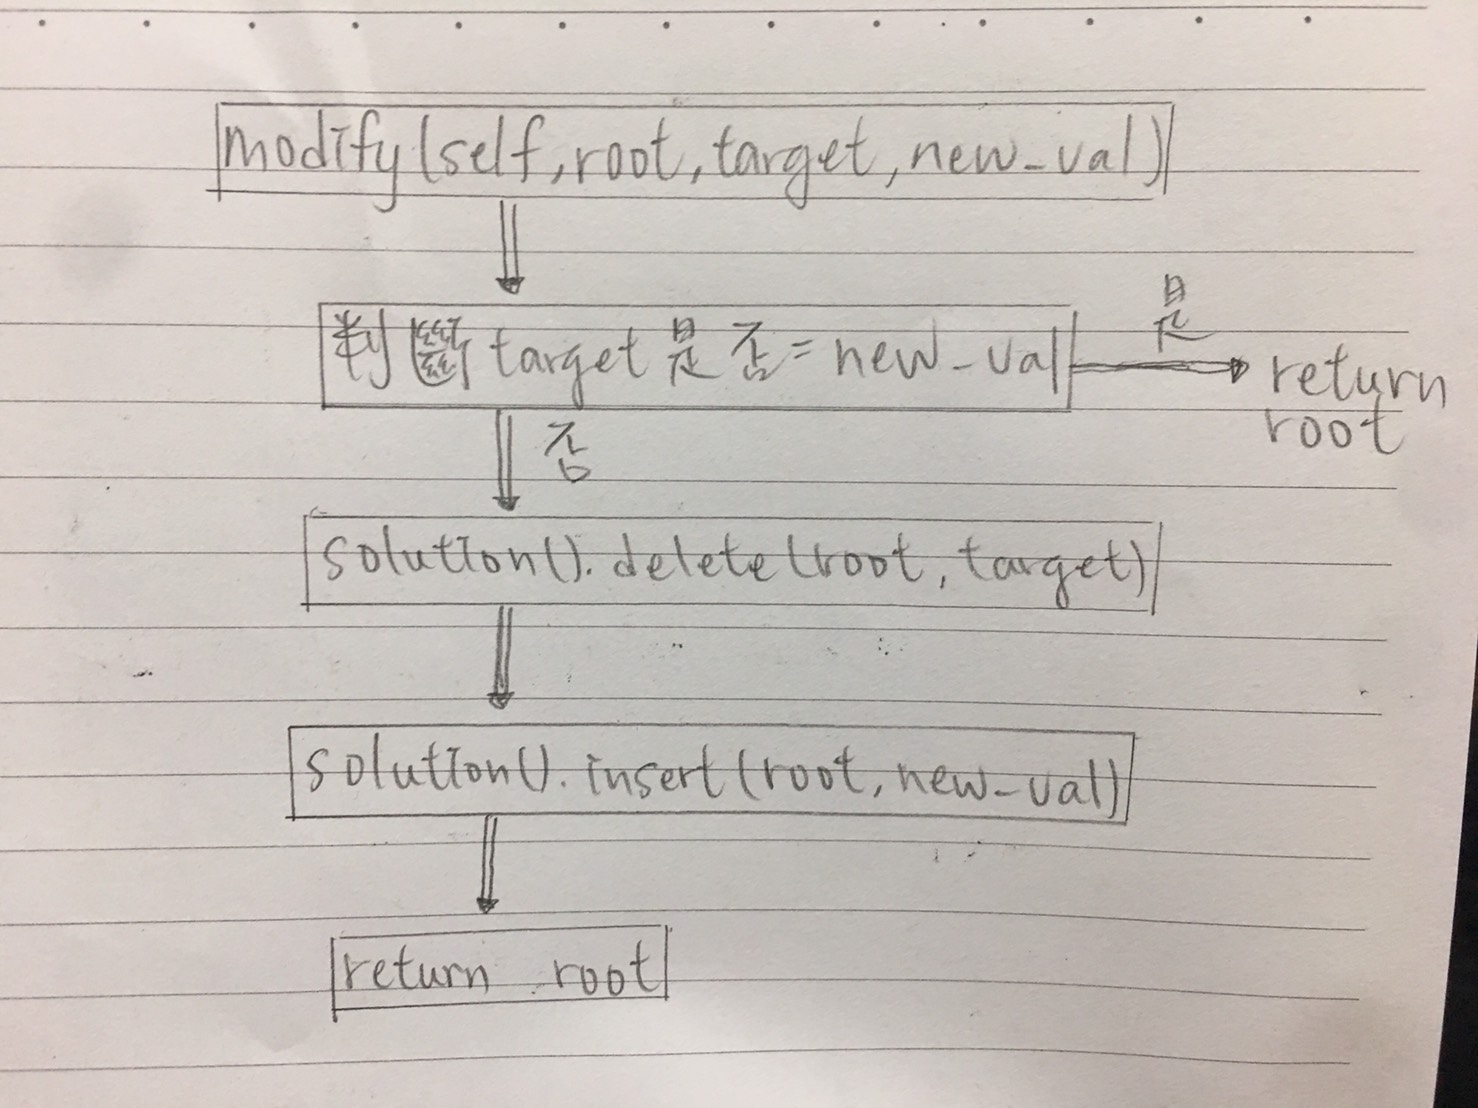 modify(self,root,target,new_val)
是
判斷target是否=new_val
return
root
否
solution().delete(root,target)
solution().insert(root,new_val)
return root